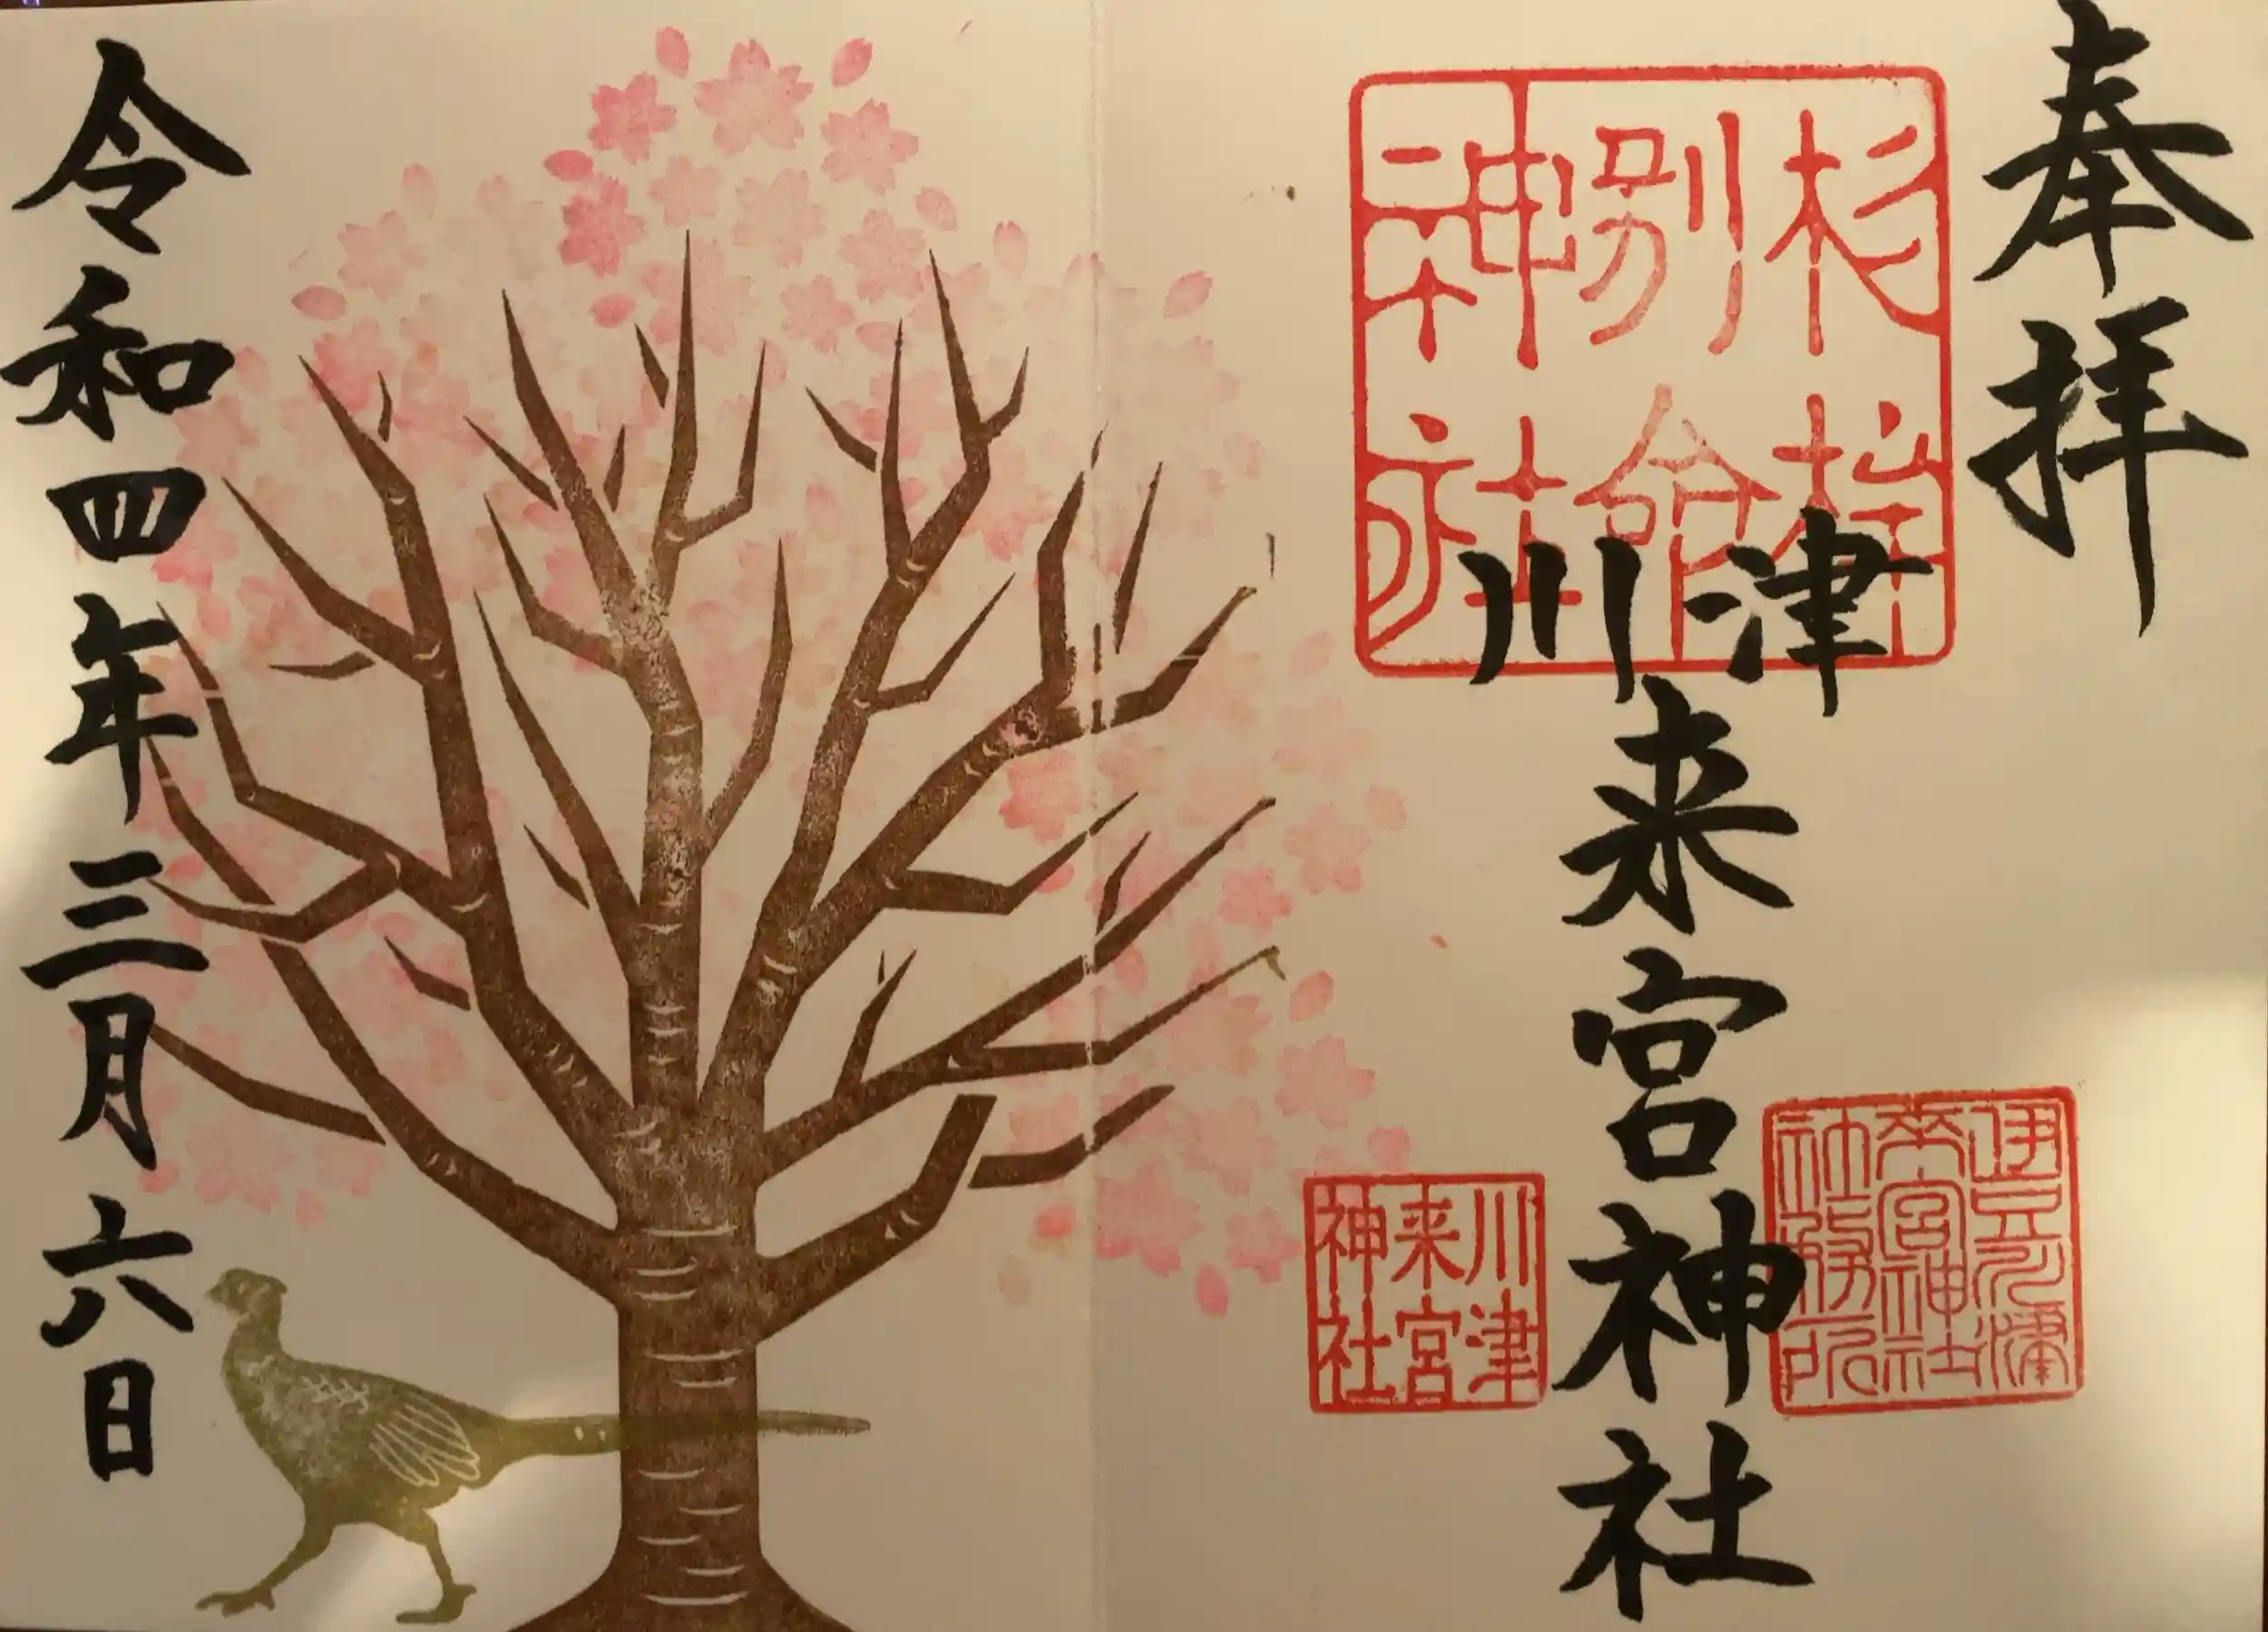 奉拝
杉桙
別命
神社
川津
来宮神社
川津
来宮
神社
伊豆河津
来宮神社
社務所
令和四年三月六日